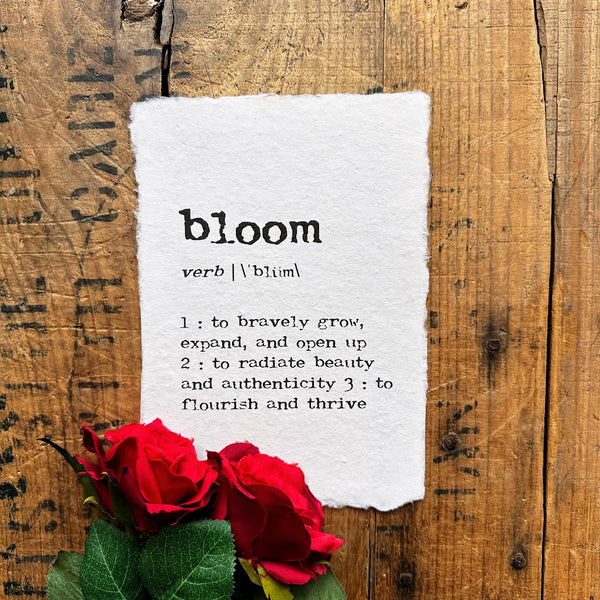 bloom
verb | \'bliim\
1 : to bravely grow,
expand, and open up
2 : to radiate beauty
and authenticity 3 : to
flourish and thrive